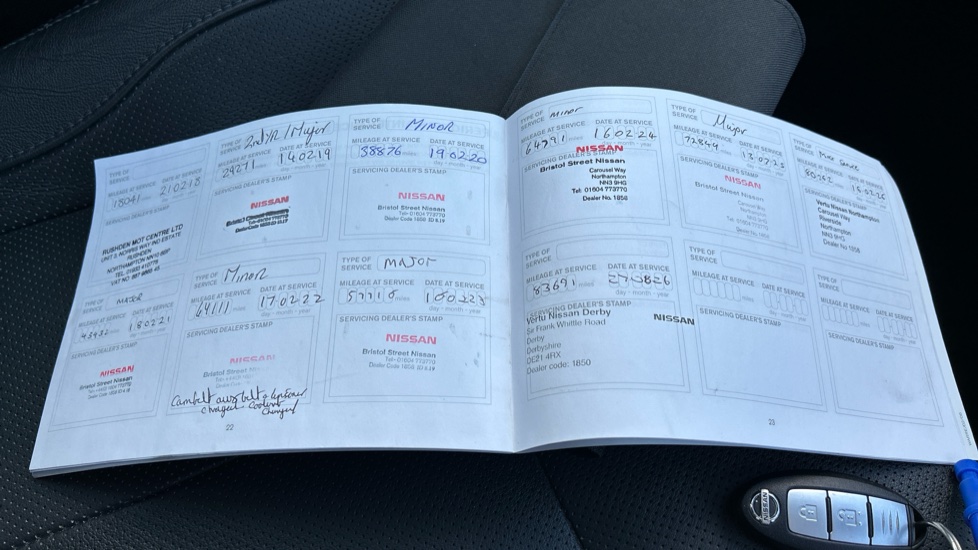 TYPE OF
SERVICE
MILEAGE AT SERVICE
DATE AT SERVICE
18041 miles
210218
SERVICING DEALER'S STAMP
RUSHDEN MOT CENTRE LTD
RUSHDEN
TYPE OF
SERVICE
2nd YR / Major
MILEAGE AT SERVICE
DATE AT SERVICE
29271 miles
140219
day - month - year
SERVICING DEALER'S STAMP
NISSAN
TYPE OF
SERVICE
MINOR
MILEAGE AT SERVICE
DATE AT SERVICE
38876 miles
190220
day - month - year
SERVICING DEALER'S STAMP
NISSAN
Bristol Street Nissan
Tel:- 01604 773770
TYPE OF
SERVICE
MAJOR
MILEAGE AT SERVICE
DATE AT SERVICE
miles
180221
day - month - year
SERVICING DEALER'S STAMP
NISSAN
Bristol Street Nissan
TYPE OF
SERVICE
Minor
MILEAGE AT SERVICE
DATE AT SERVICE
miles
170222
day - month - year
SERVICING DEALER'S STAMP
NISSAN
Cambelt aux belt + tensioner
changed. Coolant
changed
22
TYPE OF
SERVICE
MAJOR
MILEAGE AT SERVICE
DATE AT SERVICE
miles
day - month - year
SERVICING DEALER'S STAMP
NISSAN
Bristol Street Nissan
Tel:- 01604 773770
TYPE OF
SERVICE
Minor
MILEAGE AT SERVICE
DATE AT SERVICE
64791 miles
160224
SERVICING DEALER'S STAMP
NISSAN
Bristol Street Nissan
Carousel Way
Northampton
NN3 9HG
Tel: 01604 773770
Dealer No. 1858
TYPE OF
SERVICE
Major
MILEAGE AT SERVICE
DATE AT SERVICE
72844 miles
day - month - year
SERVICING DEALER'S STAMP
NISSAN
Bristol Street Nissan
Carousel Way
Northampton
NN3 9HG
Tel: 01604 773770
Dealer No. 1858
TYPE OF
SERVICE
MILEAGE AT SERVICE
DATE AT SERVICE
miles
day - month - year
SERVICING DEALER'S STAMP
Vertu Nissan Northampton
Carousel Way
Riverside
Northampton
NN3 9HG
Dealer No 1858
TYPE OF
SERVICE
MILEAGE AT SERVICE
DATE AT SERVICE
83691 miles
day - month - year
SERVICING DEALER'S STAMP
Vertu Nissan Derby
NISSAN
Sir Frank Whittle Road
Derby
Derbyshire
DE21 4RX
Dealer code: 1850
TYPE OF
SERVICE
MILEAGE AT SERVICE
DATE AT SERVICE
miles
day - month - year
SERVICING DEALER'S STAMP
TYPE OF
SERVICE
MILEAGE AT SERVICE
DATE AT SERVICE
miles
day - month - year
SERVICING DEALER'S STAMP
23
NISSAN